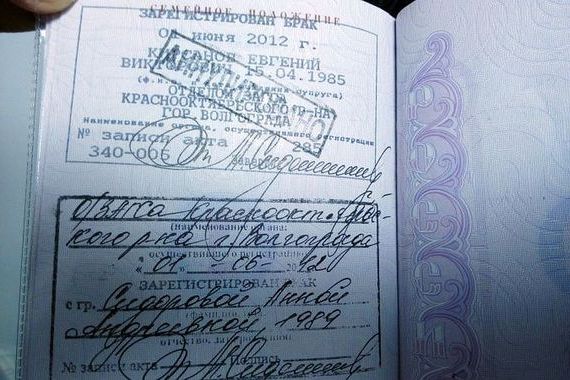 СЕМЕЙНОЕ ПОЛОЖЕНИЕ
ЗАРЕГИСТРИРОВАН БРАК
июня 2012 г.
ЕВГЕНИЙ
15.04.1985
ОТДЕЛОМ
КРАСНООКТЯБРЬСКОГО Р-НА
ГОР. ВОЛГОГРАДА
Наименование органа, осуществившего регистрацию
№ записи акта 285
340-006
ОЗАГСа Краснооктябрьс-
кого р-на г. Волгограда
(наименование органа,
осуществившего регистрацию)
"01" - 06 - 2012
ЗАРЕГИСТРИРОВАН БРАК
с гр. Сидоровой Анной
Андреевной, 1989
отчество, дата рождения)
№ записи акта Подпись